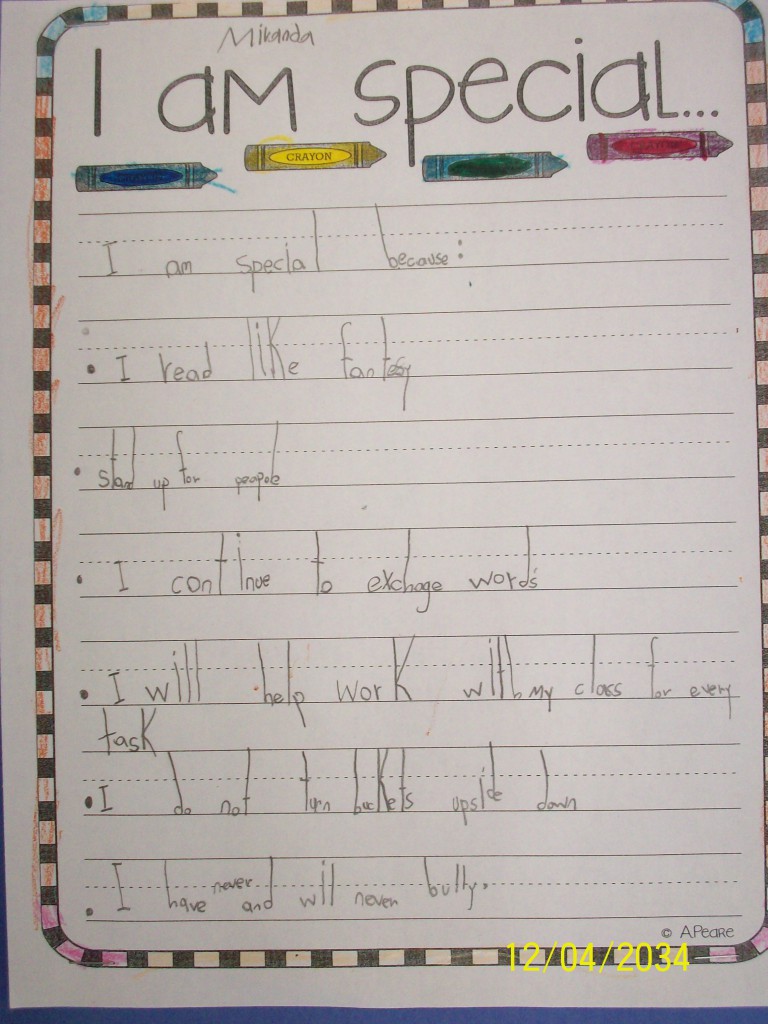 Mikanda
I am special...
CRAYON
I am special because:
• I read like fantesy
• stand up for people
• I continue to exchage words
• I will help work with my class for every
task
• I do not turn buckets upside down
• I have never and will never bully.
© A.Peare
12/04/2034